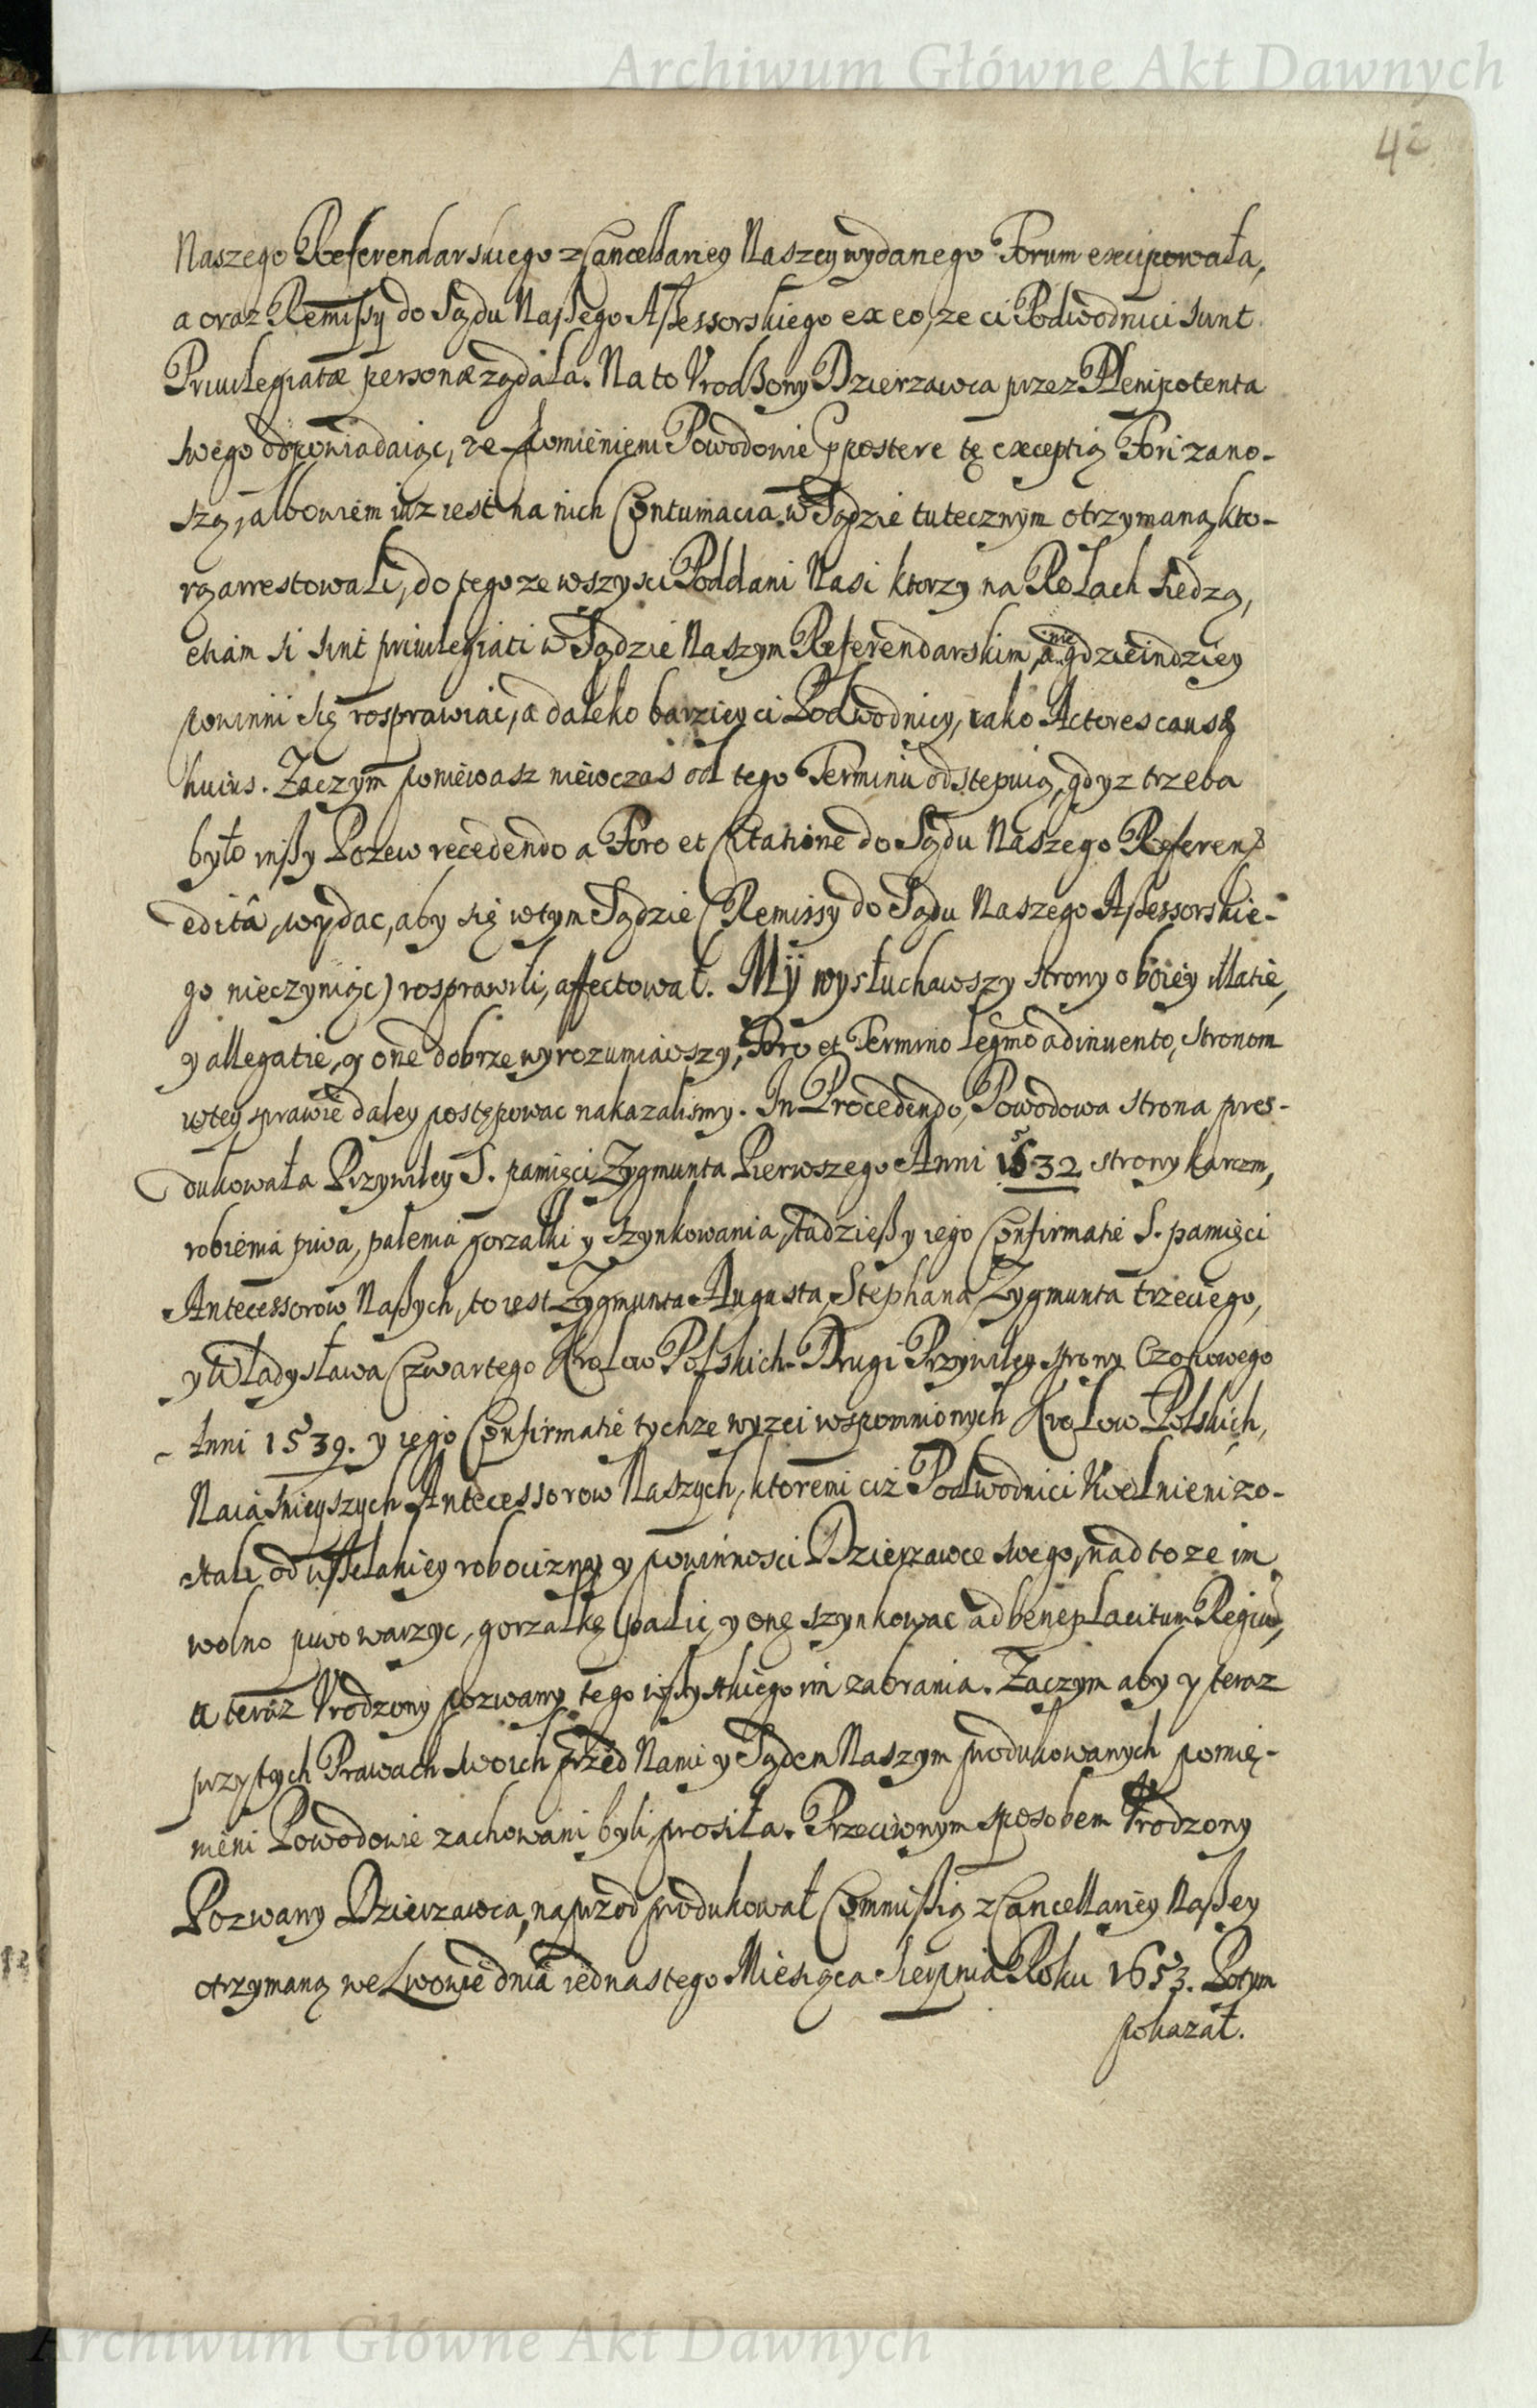 Archiwum Główne Akt Dawnych
42
Naszego Referendarskiego z Cancellariey Naszey wydanego Forum excipowała,
a oraz Remissy do Sądu Naßego Aßessorskiego ex eo, ze ci Podwodnici sunt
Priuilegiatæ personæ ządala. Na to Vrodzony Dzierzawca przez Plenipotenta
swego odpowiadaiąc, ze pomienieni Powodowie ppostere tę exceptią Fori zano-
szą, albowiem iuz iest na nich Contumacia w Sądzie tutecznym otrzymana, kto-
rą arrestowali, do tego ze wszysci Poddani Nasi ktorzy na Rolach siedzą,
etiam si sint priuilegiati w Sądzie Naszym Referendarskim, a nie gdzieindziey
powinni się rosprawiac, a daleko barziey ci Podwodnicy, iako Actores causæ
huius. Zaczym poniewasz niewczas od tego Terminu odstepuią, gdyz trzeba
było inßy Pozew recedendo a Foro et Citatione do Sądu Naszego Referen
editâ, wydac, aby się w tym Sądzie (Remissy do Sądu Naszego Aßessorskie-
go nieczyniąc) rosprawili, affectował. Mÿ wysłuchawszy strony oboiey illatie,
y allegatie, y one dobrze wyrozumiawszy, Foro et Termino legmo adinuento, stronom
w tey sprawie daley postępowac nakazalismy. In Procedendo, Powodowa strona pro-
dukowała Przywiley S. pamięci Zygmunta Pierwszego Anni 1532 strony karczm,
robienia piwa, palenia gorzałki y szynkowania, tudzießy iego Confirmatie S. pamięci
Antecessorow Naßych, to iest Zygmunta Augusta, Stephana, Zygmunta trzeciego,
y Władysława Czwartego Krolow Polskich. Drugi Przywiley strony Czopowego
Anni 1539. y iego Confirmatie tychze wyzei wspomnionych Krolow Polskich,
Naiasnieyszych Antecessorow Naszych, ktoremi ciz Podwodnici vwolnieni zo-
stali od wßelakiey robocizny y powinnosci Dzierzawce swego, nad to ze im
wolno piwo warzyc, gorzałkę palic, y onę szynkowac ad beneplacitum Regium,
a teraz Vrodzony pozwany tego wßystkiego im zabrania. Zaczym aby y teraz
przy tych Prawach swoich przed Nami y Sądem Naszym produkowanych pomię-
nieni Powodowie zachowani byli, prosiła. Przeciwnym sposobem Vrodzony
Pozwany Dzierzawca, naprzod produkował Commißią z Cancellariey Naßey
otrzymaną we Lwowie dnia iednastego Miesiąca Sierpnia Roku 1653. Potym
pokazał.
Archiwum Główne Akt Dawnych